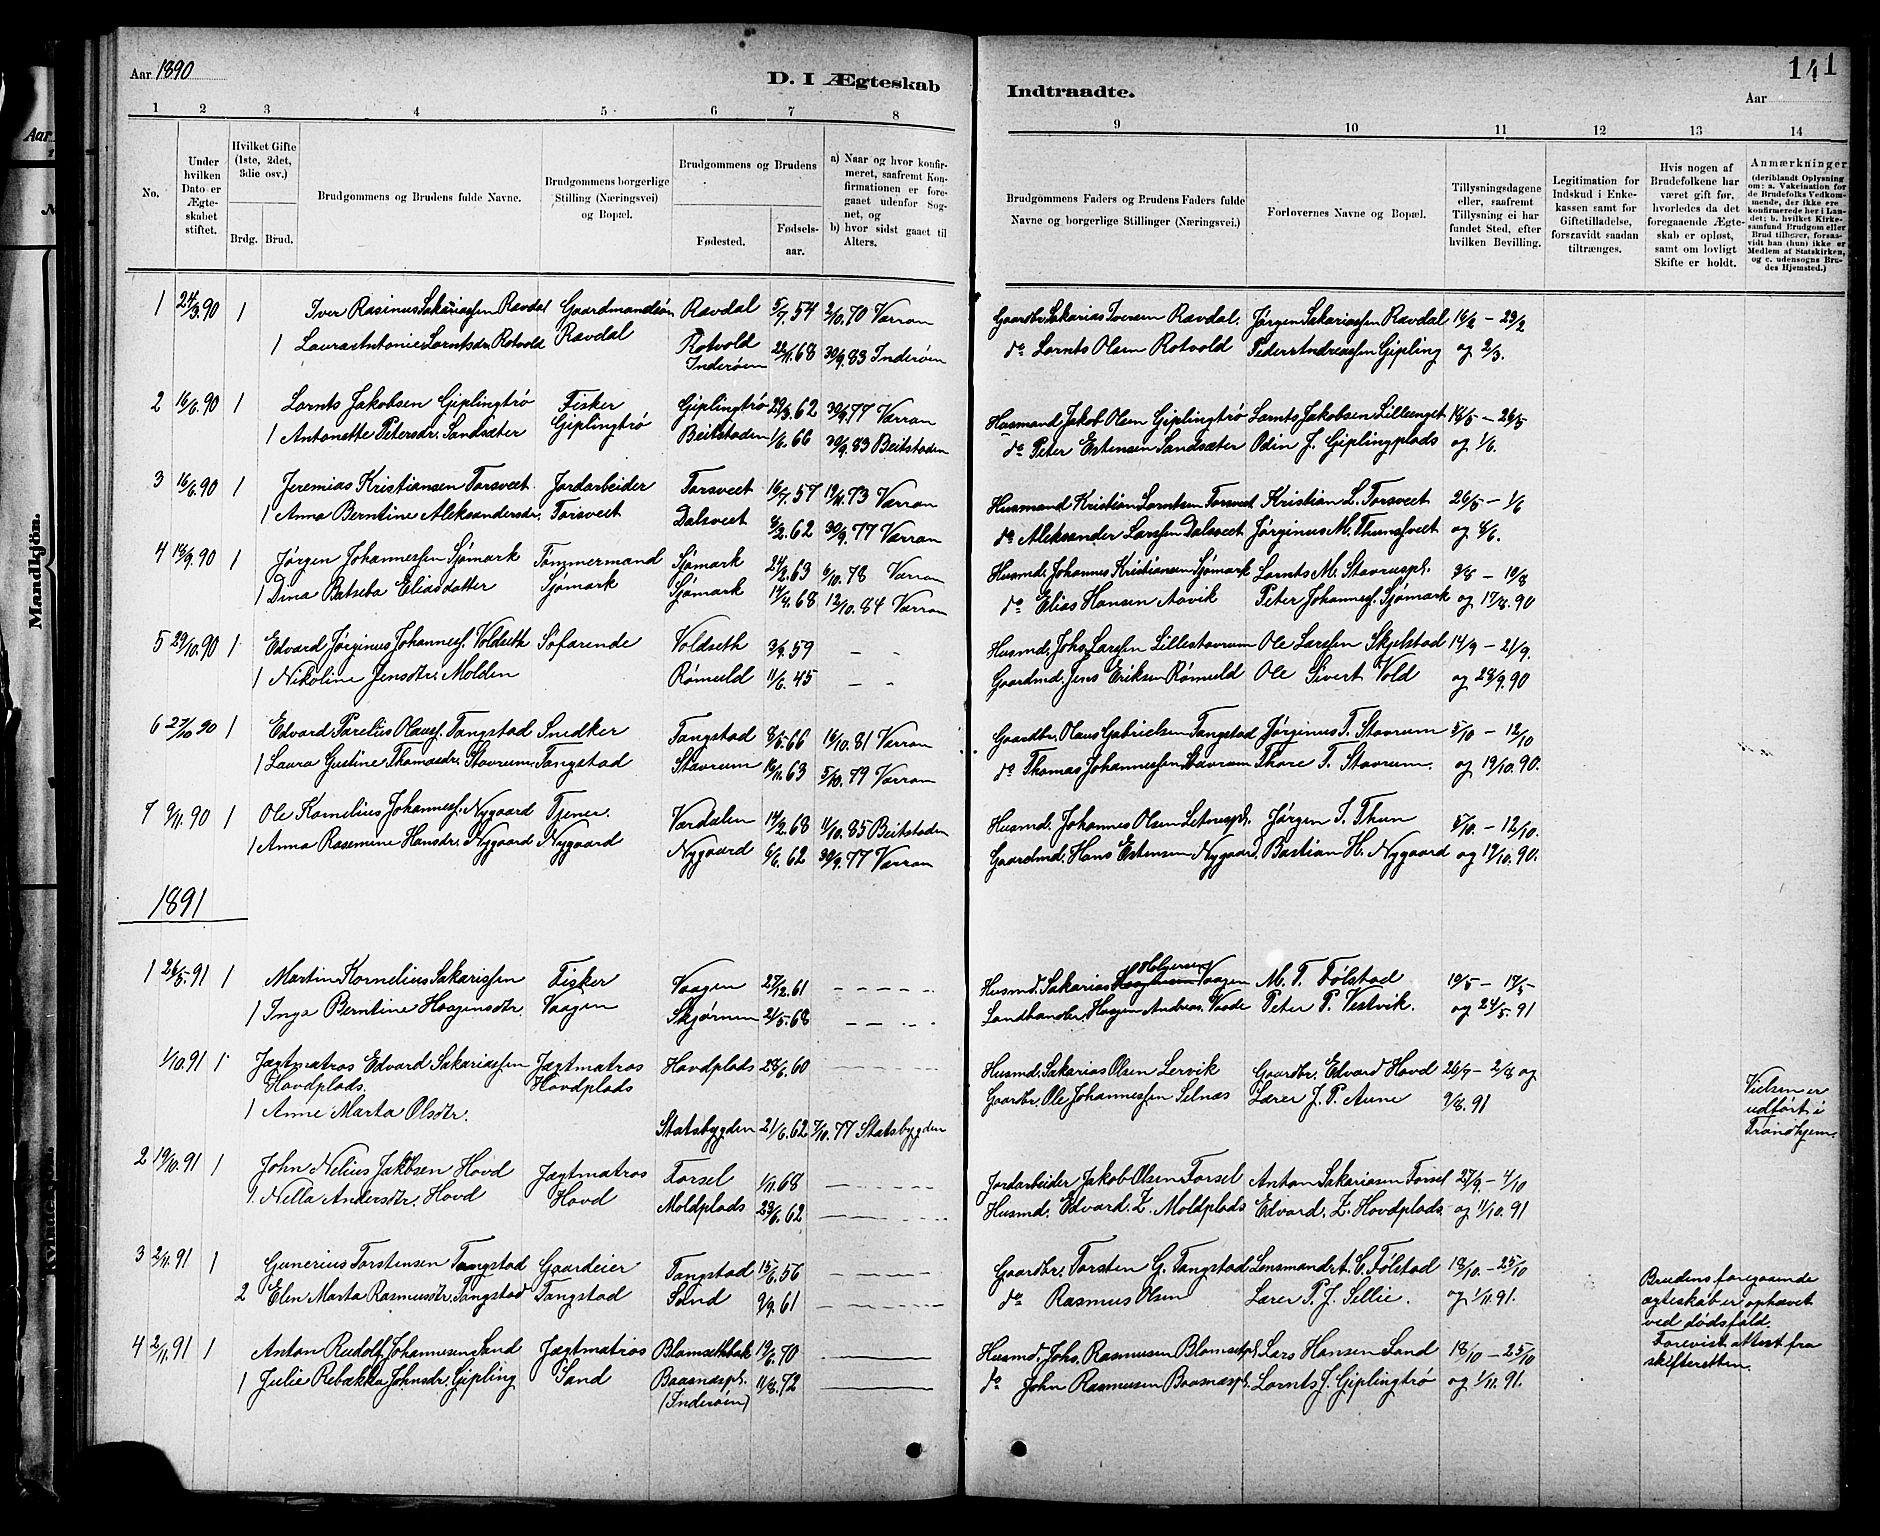 Aar 1890
D. I Ægteskab
Indtraadte.
141
Aar
1 2 3 4 5 6 7 8
9 10 11 12 13 14
No.
Under hvilken Dato er Ægteskabet stiftet.
Hvilket Gifte (1ste, 2det, 3die osv.)
Brdg. Brud.
Brudgommens og Brudens fulde Navne.
Brudgommens borgerlige Stilling (Næringsvei) og Bopæl.
Brudgommens og Brudens
Fødested. Fødselsaar.
a) Naar og hvor konfirmeret, saafremt Konfirmationen er foregaaet udenfor Sognet, og
b) hvor sidst gaaet til Alters.
Brudgommens Faders og Brudens Faders fulde Navne og borgerlige Stillinger (Næringsvei.)
Forlovernes Navne og Bopæl.
Tillysningsdagene eller, saafremt Tillysning ei har fundet Sted, efter hvilken Bevilling.
Legitimation for Indskud i Enkekassen samt for Giftetilladelse, forsaavidt saadan tiltrænges.
Hvis nogen af Brudefolkene har været gift før, hvorledes da det foregaaende Ægteskab er opløst, samt om lovligt Skifte er holdt.
Anmærkninger (deriblandt Oplysning om: a. Vakcination for de Brudefolks Vedkommende, der ikke ere konfirmerede her i Landet; b. hvilket Kirkesamfund Brudgom eller Brud tilhører, forsaavidt han (hun) ikke er Medlem af Statskirken, og c. udensogns Brudes Hjemsted.)
1 24/3.90 1 Iver Rasinus Sakariassen Ravdal Gaardmandssøn Ravdal 5/7.54 2/10.70 Værran Gaardbr. Sakarias Iversen Ravdal. Jørgen Sakariassen Ravdal 16/2 - 23/2
1 Laura Antonie Lorntsdr. Rotvold Ravdal Rotvold Inderøen 22/11.68 30/9.83 Inderøen do Lornts Olsen Rotvold Peder Andreassen Gipling og 2/3.
2 16/6.90 1 Lornts Jakobsen Giplingtrø Fisker Giplingtrø 29/3.62 30/9.77 Værran Husmand Jakob Olsen Giplingtrø Lornts Jakobsen Lillenget 18/5 - 26/5
1 Antonette Petersdr. Sandsæter Giplingtrø Beitstaden 1/6.66 30/9.83 Beitstaden do Peter Estensen Sandsæter Odin J. Giplingplads og 1/6.
3 16/6.90 1 Jeremias Kristiansen Torsveet Jordarbeider Torsveet 16/7.57 19/11.73 Værran Husmand Kristian Lorntsen Torsveet Kristian L. Torsveet 26/5 - 1/6
1 Anna Berntine Aleksandersdr. Torsveet Dalsveet 8/2.62 30/9.77 Værran do Aleksander Larssen Dalsveet Jørginus M. Thunsveet og 8/6.
4 18/9.90 1 Jørgen Johannessen Sjømark Tømmermand Sjømark 24/2.63 6/10.78 Værran Husmd. Johannes Kristiansen Sjømark Lornts M. Stavruspl. 3/8 - 10/8
1 Dina Batseba Eliasdatter Sjømark Sjømark 17/4.68 12/10.84 Værran do Elias Hansen Aavik Peter Johanness. Sjømark og 17/8.90
5 29/10.90 1 Edvard Jørginus Johanness. Voldseth Søfarende Voldseth 3/9.59 - - Husmd. Johs. Larssen Lillestavrum Ole Larssen Skjelstad 14/9 - 21/9.
1 Nikoline Jensdtr. Molden Rømuld 11/6.45 - - Gaardmd. Jens Eriksen Rømuld Ole Sivert Vold og 28/9.90
6 27/10 90 1 Edvard Parelius Olauss. Tangstad Snedker Tangstad 8/5.66 16/10.81 Værran Gaardbr. Olaus Gabrielsen Tangstad Jørginus T. Stavrum 5/10 - 12/10
1 Laura Gustine Thomasdr. Stavrum Tangstad Stavrum 16/11.63 5/10.79 Værran do Thomas Johannessen Stavrum Thore T. Stavrum. og 19/10.90.
7 9/11.90 1 Ole Kornelius Johanness. Nygaard Tjener. Værdalen 14/2.68 11/10.85 Beitstaden Husmd. Johannes Olsen Jørgen T. Thun 5/10 - 12/10.
1 Anna Rasemine Hansdr. Nygaard Nygaard Nygaard 6/6.62 30/9.77 Værran Gaardmd. Hans Estensen Nygaard Bastian H. Nygaard og 19/10.90.
1891
1 26/5.91 1 Martin Kornelius Sakarissen Fisker Vaagen 27/12.61 - - - - - Husmd. Sakarias Holgersen Vaagen M. T. Følstad 10/5 - 17/5
1 Inga Berntine Haagensdtr. Vaagen Skjørnen 21/5.68 - - - - Landhandler Haagen Andreas. Vaade Peter P. Vestvik. og 24/5.91
1/10.91 1 Jægtmatros Edvard Sakariassen Jægtmatros Hovdplads 28/6.60 Husmd. Sakarias Olsen Lervik Gaardbr. Edvard Hovd 26/7 - 2/8 og
Hovdplads. Hovdplads Gaardbr. Ole Johannessen Selnæs Lærer J. P. Aune 9/8.91 Vielsen er udført i Trondhjem.
1 Anne Marta Olsdtr.
Statsbygden 21/6.62 7/10.77 Statsbygden
2 19/10.91 1 John Nelius Jakobsen Hovd Jægtmatros Forsel 1/11.68 Jordarbeider Jakob Olsen Forsel Anton Sakariasen Forsel 27/9 - 4/10
1. Nella Andersdtr. Hovd Hovd Moldplads 23/6.62 Husmd. Edvard. Z. Moldplads Edvard. Z. Hovdplads og 11/10.91
3 2/11.91 1 Gunerius Torstensen Tangstad Gaardeier Tangstad 15/6.56 Gaardbr. Torsten G. Tangstad Lensmandrt. C. Følstad 18/10 - 25/10
2 Elen Marta Rasmusdtr. Tangstad Tangstad Sand 9/9.61 do Rasmus Olsen Lærer P. J. Sellie. og 1/11.91. Brudens foregaaende ægteskab er ophævet ved dødsfald. Forevist attest fra skifteretten.
4 2/11.91 1 Anton Rudolf Johannesen Sand Jægtmatros Blomsethbak 19/6.70 Husmd. Johs. Rasmussen Blomsetpl. Lars Hansen Sand 18/10 - 25/10
1 Julie Rebækka Johnsdr. Gipling Sand Baasnaspl. (Inderøen) 11/8.72 do John Rasmusen Baasnaspl. Lornts J. Giplingtrø og 1/11.91.
Mandkjøn.